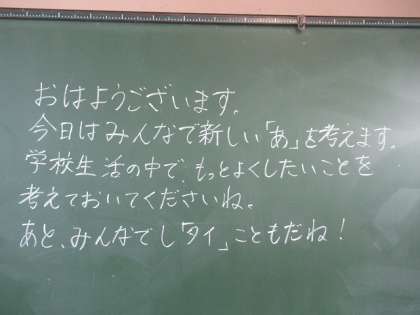 おはようございます。
今日はみんなで新しい「あ」を考えます。
学校生活の中で、もっとよくしたいことを
考えておいてくださいね。
あと、みんなでし「タイ」こともだね!